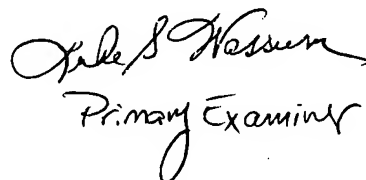 Luke S Wassum
Primary Examiner